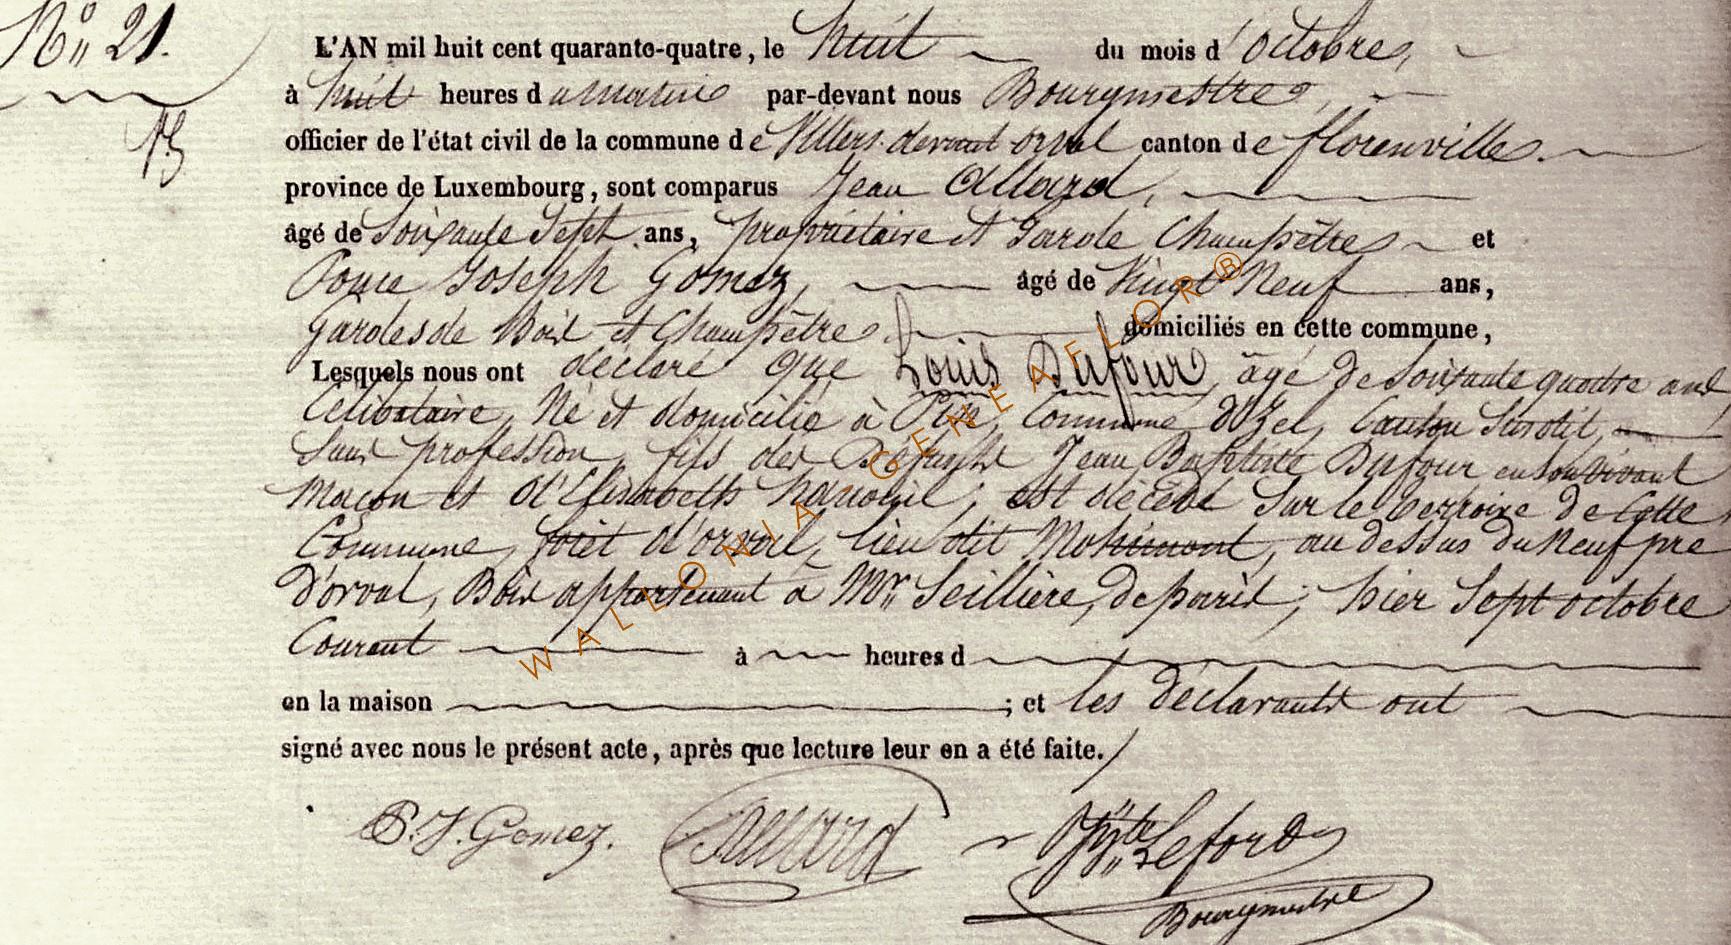 N° 21.
L'AN mil huit cent quarante-quatre, le huit du mois d'octobre,
à huit heures du matin par-devant nous Bourgmestre,
officier de l'état civil de la commune de Villers devant orval canton de florenville.
province de Luxembourg, sont comparus Jean Allard,
âgé de Soixante Sept ans, propriétaire et Garde Champêtre et
Ponce Joseph Gomez, âgé de Vingt Neuf ans,
gardes de Bois et Champêtre domiciliés en cette commune,
Lesquels nous ont déclaré que Louis Dufour, âgé de Soixante quatre ans
Célibataire, Né et domicilié à Pin, Commune d'Izel, Canton Susdit,
Sans profession, fils des Défunts Jean Baptiste Dufour en son vivant
Maçon et d'Elisabeth ; est décédé Sur le terroire de Cette
Commune, forêt d'orval, lieu dit au dessus du Neuf pré
D'orval, Bois appartenant à Mr Seillière, de paris ; hier Sept octobre
Courant à heures d
en la maison ; et les déclarants ont
signé avec nous le présent acte, après que lecture leur en a été faite.
P. J. Gomez. J allard Leford
Bourgmestre
WALLONIA.GENEAFLOR®